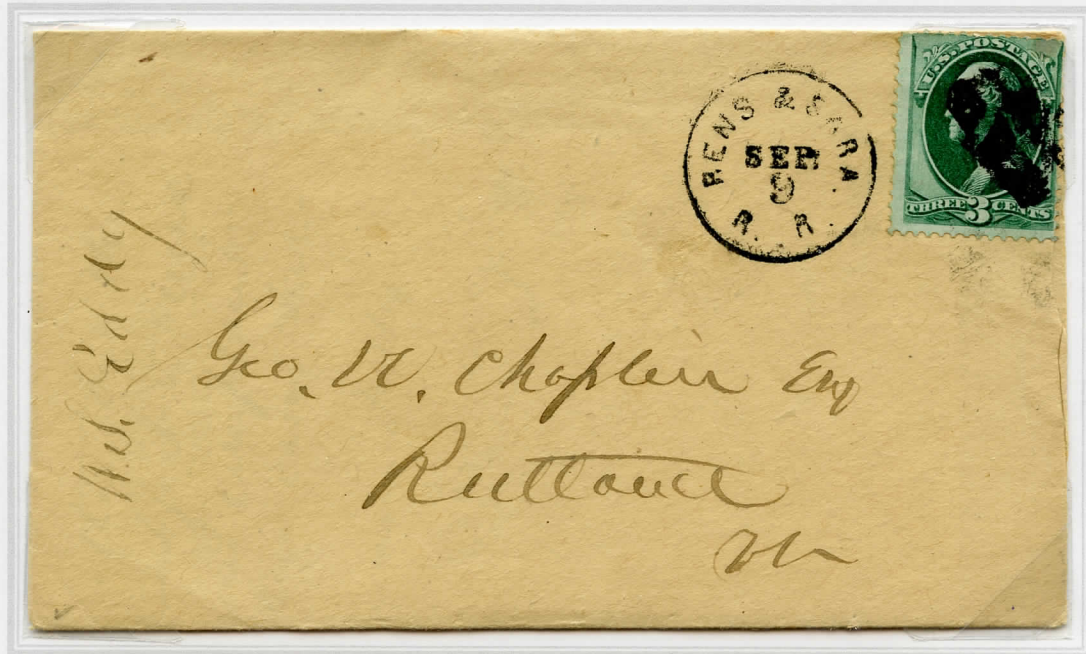 U.S. POSTAGE
THREE 3 CENTS
RENS & SARA
SEP
9
R. R.
Geo. W. Chaplin Esq
Rutland
Vt
Eddy